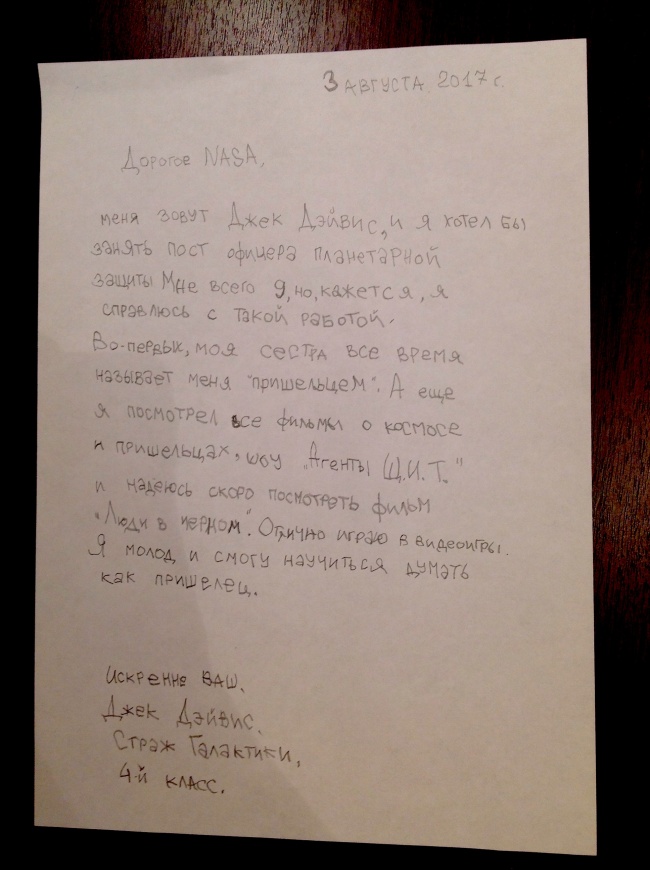 3 августа 2017 г.
Дорогое NASA,
меня зовут Джек Дэйвис, и я хотел бы
занять пост офицера планетарной
защиты Мне всего 9, но, кажется, я
справлюсь с такой работой.
Во-первых, моя сестра все время
называет меня "пришельцем". А еще
я посмотрел все фильмы о космосе
и пришельцах, шоу „Агенты Щ.И.Т."
и надеюсь скоро посмотреть фильм
„Люди в черном". Отлично играю в видеоигры.
Я молод и смогу научиться думать
как пришелец.
Искренне ваш,
Джек Дэйвис,
Страж Галактики,
4-й класс.